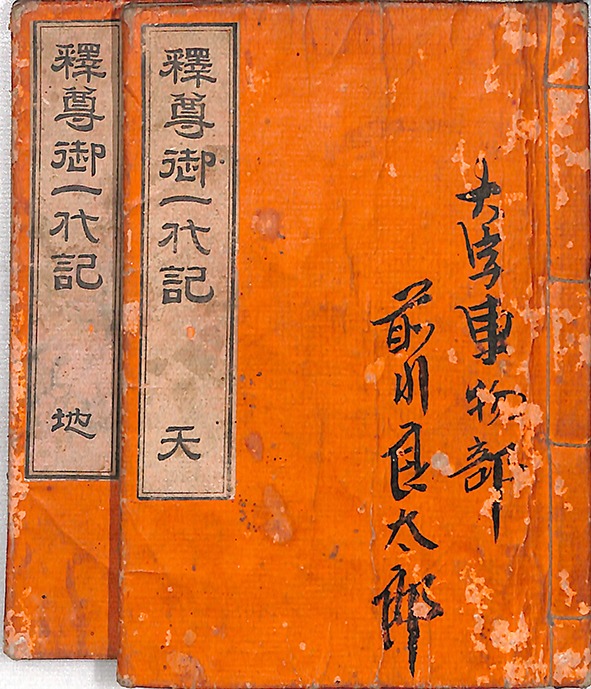 大字東物部
前川良太郎
釋尊御一代記 天
釋尊御一代記 地